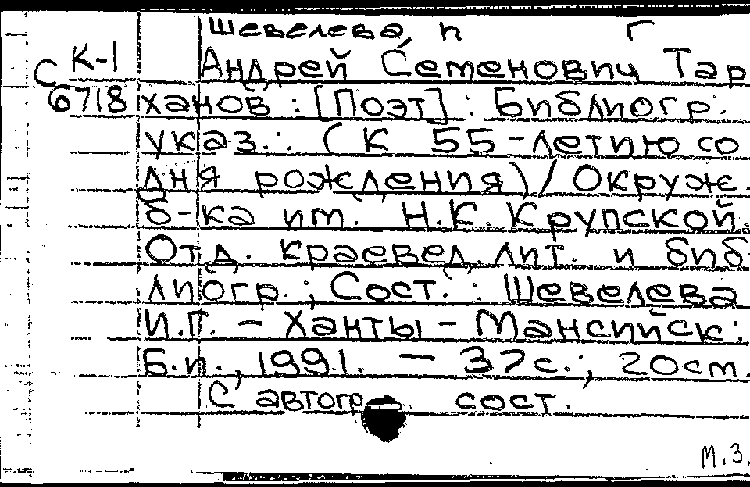 Шевелева, п Г
К-1
С
6718
Андрей Семенович Тар
ханов : [Поэт] : Библиогр.
указ. : (К 55-летию со
дня рождения) / Окруж.
б-ка им. Н.К. Крупской.
Отд. краевед. лит. и биб
лиогр. ; Сост. : Шевелева
И.П. - Ханты - Мансийск :
Б.и., 1991. - 37с. ; 20см.
С автогр. сост.
М.З.